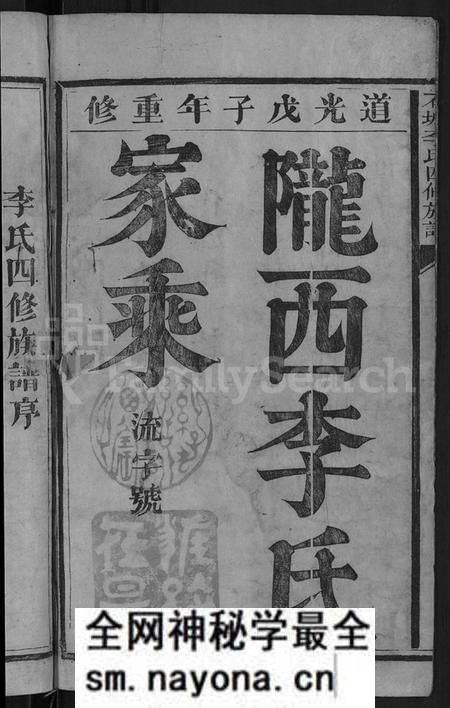 道光戊子年重修
隴西李氏
家乘
流字號
李氏四修族譜序
李氏四修族譜
FamilySearch
全网神秘学最全
sm.nayona.cn